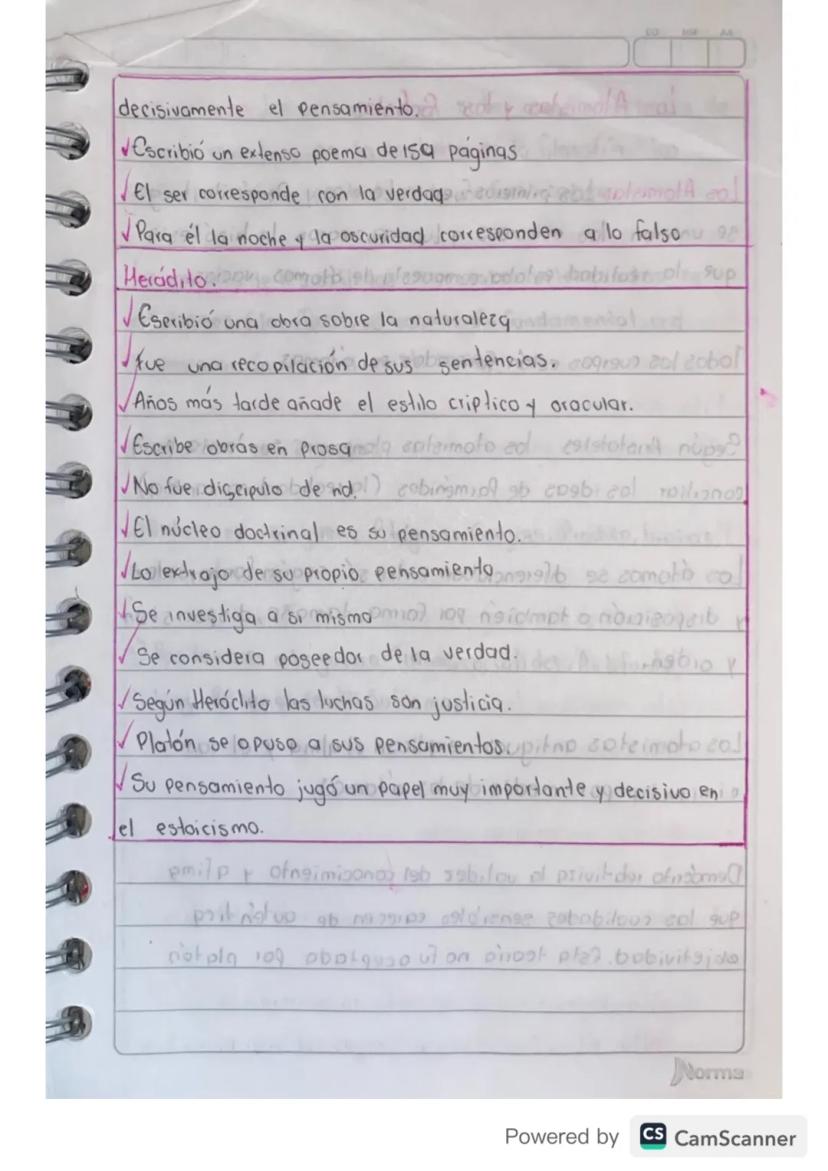 decisivamente el pensamiento.
✓Escribió un extenso poema de 159 páginas
✓El ser corresponde con la verdad
✓Para él la noche y la oscuridad corresponden a lo falso
Heráclito.
✓Escribió una obra sobre la naturaleza
✓fue una recopilación de sus sentencias.
✓Años más tarde añade el estilo criptico y oracular.
✓Escribe obras en prosa
✓No fue discipulo de nd.
✓El núcleo doctrinal es su pensamiento.
✓Lo extrajo de su propio pensamiento
✓Se investiga a si mismo
✓Se considera poseedor de la verdad.
✓Según Heráclito las luchas son justicia.
✓Platón se opuso a sus pensamientos.
✓Su pensamiento jugó un papel muy importante y decisivo en
el estoicismo.
Norma
Powered by CS CamScanner